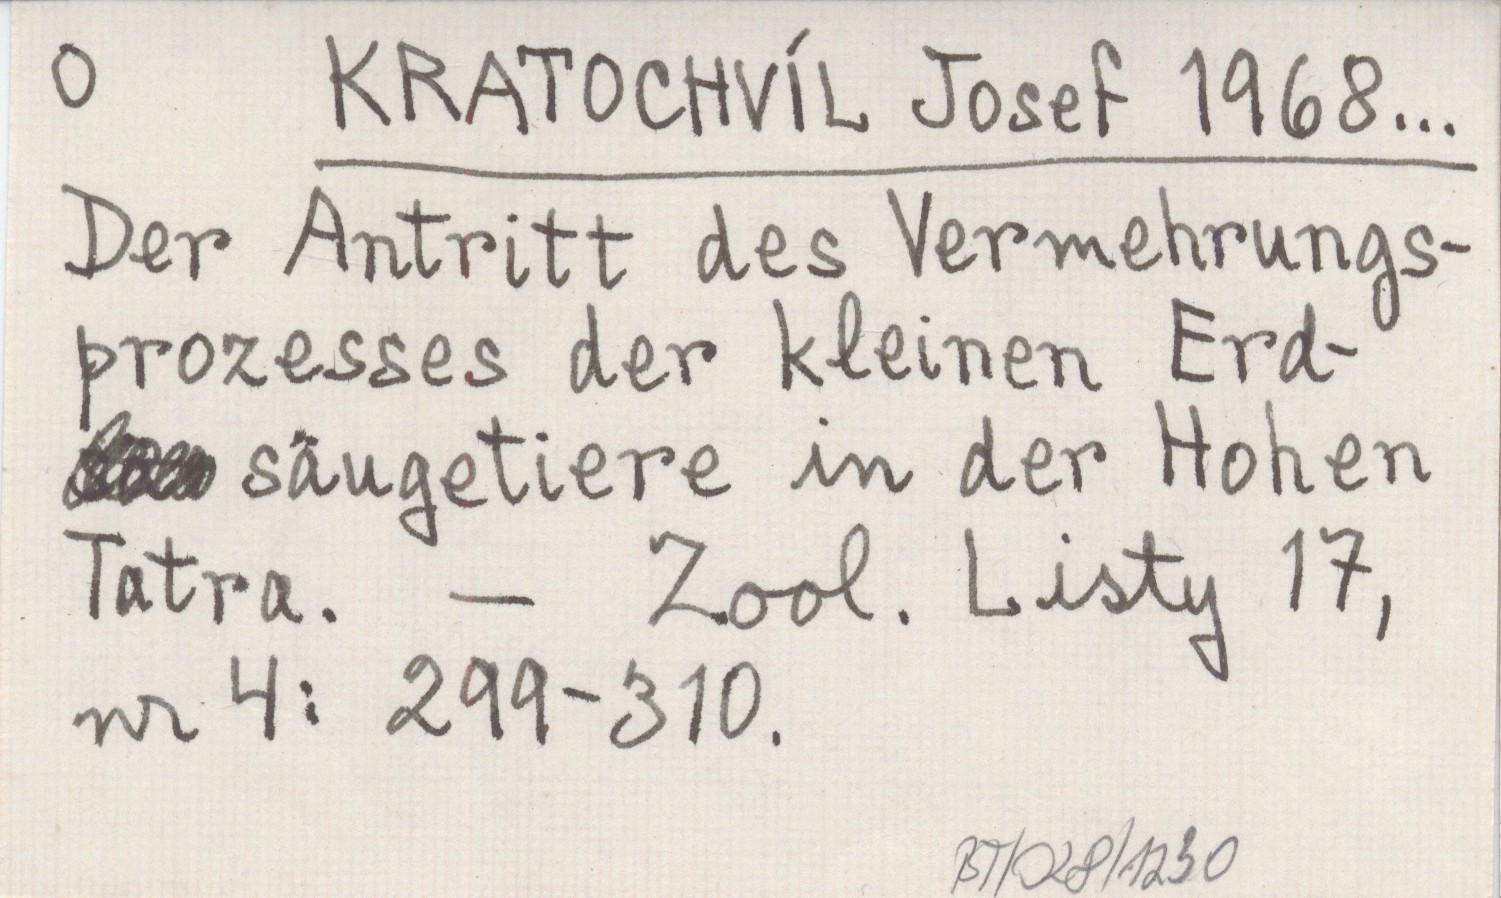 O KRATOCHVÍL Josef 1968...
Der Antritt des Vermehrungs-
prozesses der kleinen Erd-
säugetiere in der Hohen
Tatra. — Zool. Listy 17,
nr 4: 299-310.
BT/028/1230